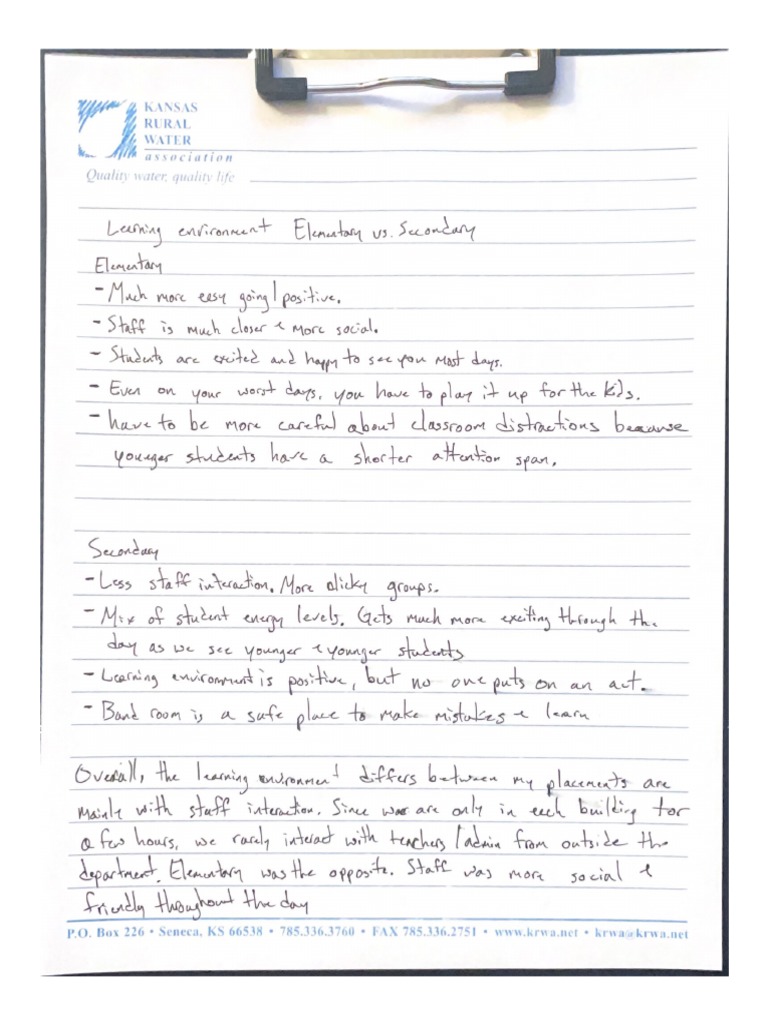 KANSAS
RURAL
WATER
association
Quality water, quality life
Learning environment Elementary vs. Secondary
Elementary
- Much more easy going/positive.
- Staff is much closer & more social.
- Students are excited and happy to see you most days.
- Even on your worst days, you have to play it up for the kids.
- have to be more careful about classroom distractions because
younger students have a shorter attention span.
Secondary
- Less staff interaction. More clicky groups.
- Mix of student energy levels. Gets much more exciting through the
day as we see younger & younger students
- Learning environment is positive, but no one puts on an act.
- Band room is a safe place to make mistakes & learn
Overall, the learning environment differs between my placements are
mainly with staff interaction. Since we are only in each building for
a few hours, we rarely interact with teachers/admin from outside the
department. Elementary was the opposite. Staff was more social &
friendly throughout the day
P.O. Box 226 • Seneca, KS 66538 • 785.336.3760 • FAX 785.336.2751 • www.krwa.net • krwa@krwa.net